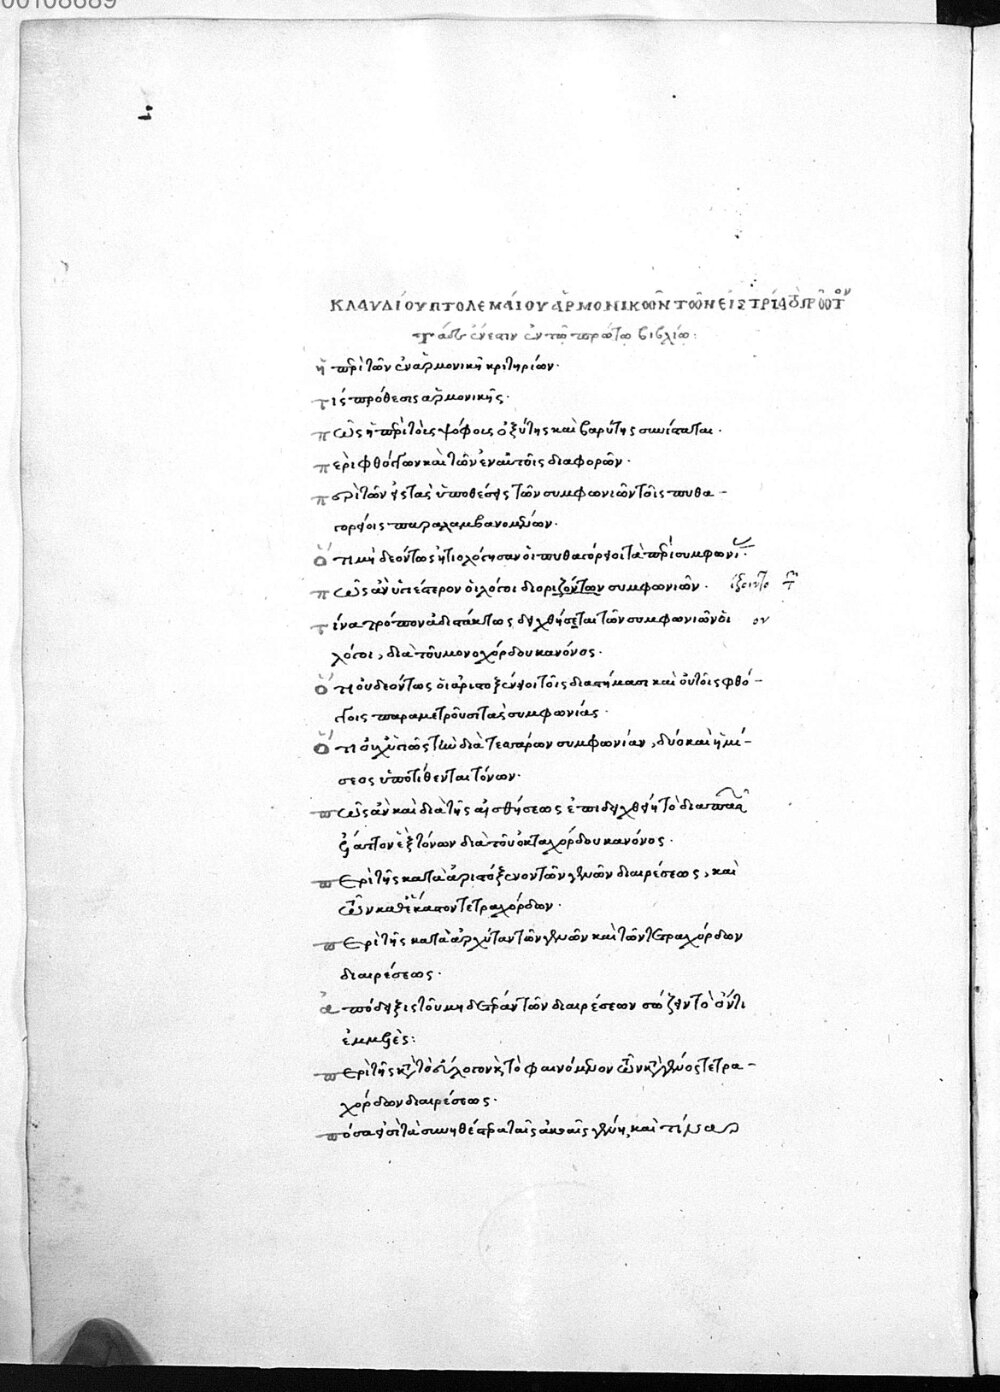 00108689
ΚΛΑΥΔΊΟΥ ΠΤΟΛΕΜΑΊΟΥ ἉΡΜΟΝΙΚΩ͂Ν ΤΩ͂Ν ΕἸΣ ΤΡΊΑ ΤῸ ΠΡΩ͂ΤΟΝ
Τάδε ἔνεστιν ἐν τῶ πρώτω βιβλίω:
ἢ περὶ τῶν ἐν ἁρμονικῆ κριτηρίων·
τίς πρόθεσις ἁρμονικῆς·
πῶς ἡ περὶ τοῖς ψόφοις ὀξύτης καὶ βαρύτης συνίσταται·
περὶ φθόγγων καὶ τῶν ἐν αὐτοῖς διαφορῶν·
περὶ τῶν εἰς τὰς ὑποθέσεις τῶν συμφωνιῶν τοῖς πυθα-
γορείοις παραλαμβανομένων·
ὅτι μὴ δεόντως ἠτιολόγησαν οἱ πυθαγόρειοι τὰ περὶ συμφωνι
πῶς ἂν ὑγιέστερον οἱ λόγοι διορίζοιντων συμφωνιῶν·
τίνα τρόπον ἀδιστάκτως δειχθήσεται τῶν συμφωνιῶν οἱ ον
λόγοι, διὰ τοῦ μονοχόρδου κανόνος·
ὅτι οὐ δεόντως οἱ ἀριστοξένειοι τοῖς διαστήμασι καὶ οὐ τοῖς φθό-
γγοις παραμετροῦσι τὰς συμφωνίας·
ὅτι οὐχ ὑγιῶς τὴν διὰ τεσσάρων συμφωνίαν, δύο καὶ ἡμί-
σεος ὑποτίθενται τόνων·
πῶς ἂν καὶ διὰ τῆς αἰσθήσεως ἐπιδειχθείη τὸ διαπασῶν
ἔλαττον ἓξ τόνων διὰ τοῦ ὀκταχόρδου κανόνος·
περὶ τῆς κατὰ ἀριστόξενον τῶν γενῶν διαιρέσεως, καὶ
τῶν καθ' ἕκαστον τετραχόρδων·
περὶ τῆς κατὰ ἀρχύταν τῶν γενῶν καὶ τῶν τετραχόρδων
διαιρέσεως·
ἀπόδειξις τοῦ μηδετέραν τῶν διαιρέσεων σώζειν τὸ ὄντι
ἐμμελὲς:
περὶ τῆς κατὰ τὸ εὔλογον καὶ τὸ φαινόμενον τῶν κατὰ γένος τετρα-
χόρδων διαιρέσεως·
πόσα εἰσὶ τὰ συνηθέστερα ταῖς ἀκοαῖς γένη, καὶ τίνα